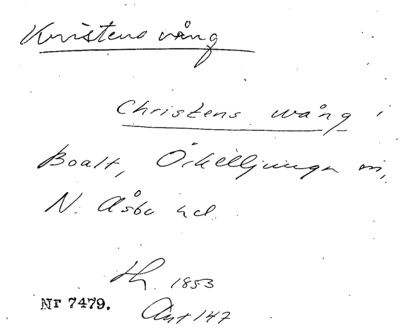 Kristens vång
Christens wång i
Boalt, Örkelljunga sn,
N. Åsbo hd.
1853
Nr 7479.
Ant 147